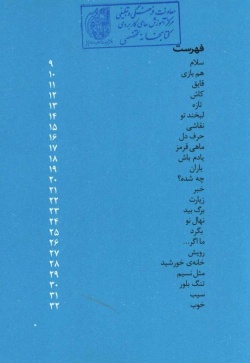 معاونت فرهنگی و تبلیغی
فهرست
سلام ۹
هم بازی ۱۰
قایق ۱۱
کاش ۱۲
تازه ۱۳
لبخند تو ۱۴
نقاشی ۱۵
حرف دل ۱۶
ماهی قرمز ۱۷
یادم باش ۱۸
باران ۱۹
چه شده؟ ۲۰
خبر ۲۱
زیارت ۲۲
برگ بید ۲۳
نهال نو ۲۴
بگرد ۲۵
ما اگر... ۲۶
رویش ۲۷
خانه‌ی خورشید ۲۸
مثل نسیم ۲۹
تنگ بلور ۳۰
سیب ۳۱
خوب ۳۲